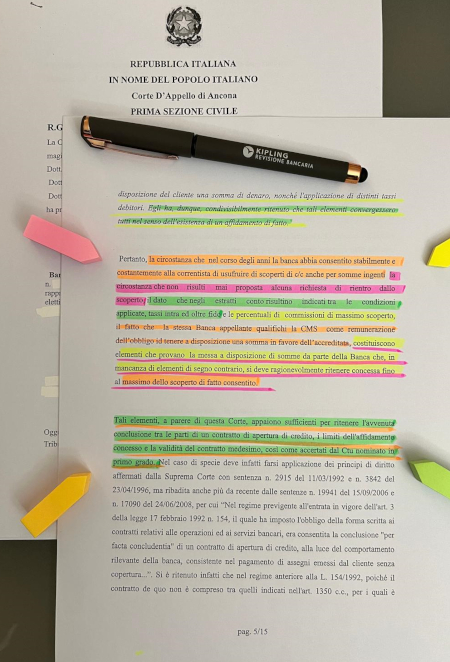 REPUBBLICA ITALIANA
IN NOME DEL POPOLO ITALIANO
Corte D'Appello di Ancona
PRIMA SEZIONE CIVILE
R.G
La C
magi
Dott.
Dott
Dott
ha pr
KIPLING
REVISIONE BANCARIA
disposizione del cliente una somma di denaro, nonché l'applicazione di distinti tassi
debitori. Egli ha, dunque, condivisibilmente ritenuto che tali elementi convergessero
tutti nel senso dell'esistenza di un affidamento di fatto."
Pertanto, la circostanza che nel corso degli anni la banca abbia consentito stabilmente e
costantemente alla correntista di usufruire di scoperti di c/c anche per somme ingenti la
circostanza che non risulti mai proposta alcuna richiesta di rientro dallo
scoperto, il dato che negli estratti conto risultino indicati tra le condizioni
applicate, tassi intra ed oltre fido e le percentuali di commissioni di massimo scoperto,
il fatto che la stessa Banca appellante qualifichi la CMS come remunerazione
dell'obbligo id tenere a disposizione una somma in favore dell'accreditata, costituiscono
elementi che provano la messa a disposizione di somme da parte della Banca che, in
mancanza di elementi di segno contrario, si deve ragionevolmente ritenere concessa fino
al massimo dello scoperto di fatto consentito.
Ban
n.
rapp
elett
Tali elementi, a parere di questa Corte, appaiono sufficienti per ritenere l'avvenuta
conclusione tra le parti di un contratto di apertura di credito, i limiti dell'affidamento
concesso e la validità del contratto medesimo, così come accertati dal Ctu nominato in
primo grado. Nel caso di specie deve infatti farsi applicazione dei principi di diritto
affermati dalla Suprema Corte con sentenza n. 2915 del 11/03/1992 e n. 3842 del
23/04/1996, ma ribadita anche più da recente dalle sentenze n. 19941 del 15/09/2006 e
n. 17090 del 24/06/2008, per cui "Nel regime previgente all'entrata in vigore dell'art. 3
della legge 17 febbraio 1992 n. 154, il quale ha imposto l'obbligo della forma scritta ai
contratti relativi alle operazioni ed ai servizi bancari, era consentita la conclusione "per
facta concludentia" di un contratto di apertura di credito, alla luce del comportamento
rilevante della banca, consistente nel pagamento di assegni emessi dal cliente senza
copertura...". Si è ritenuto infatti che nel regime anteriore alla L. 154/1992, poiché il
contratto de quo non è compreso tra quelli indicati nell'art. 1350 c.c., per i quali è
Ogge
Trib
pag. 5/15